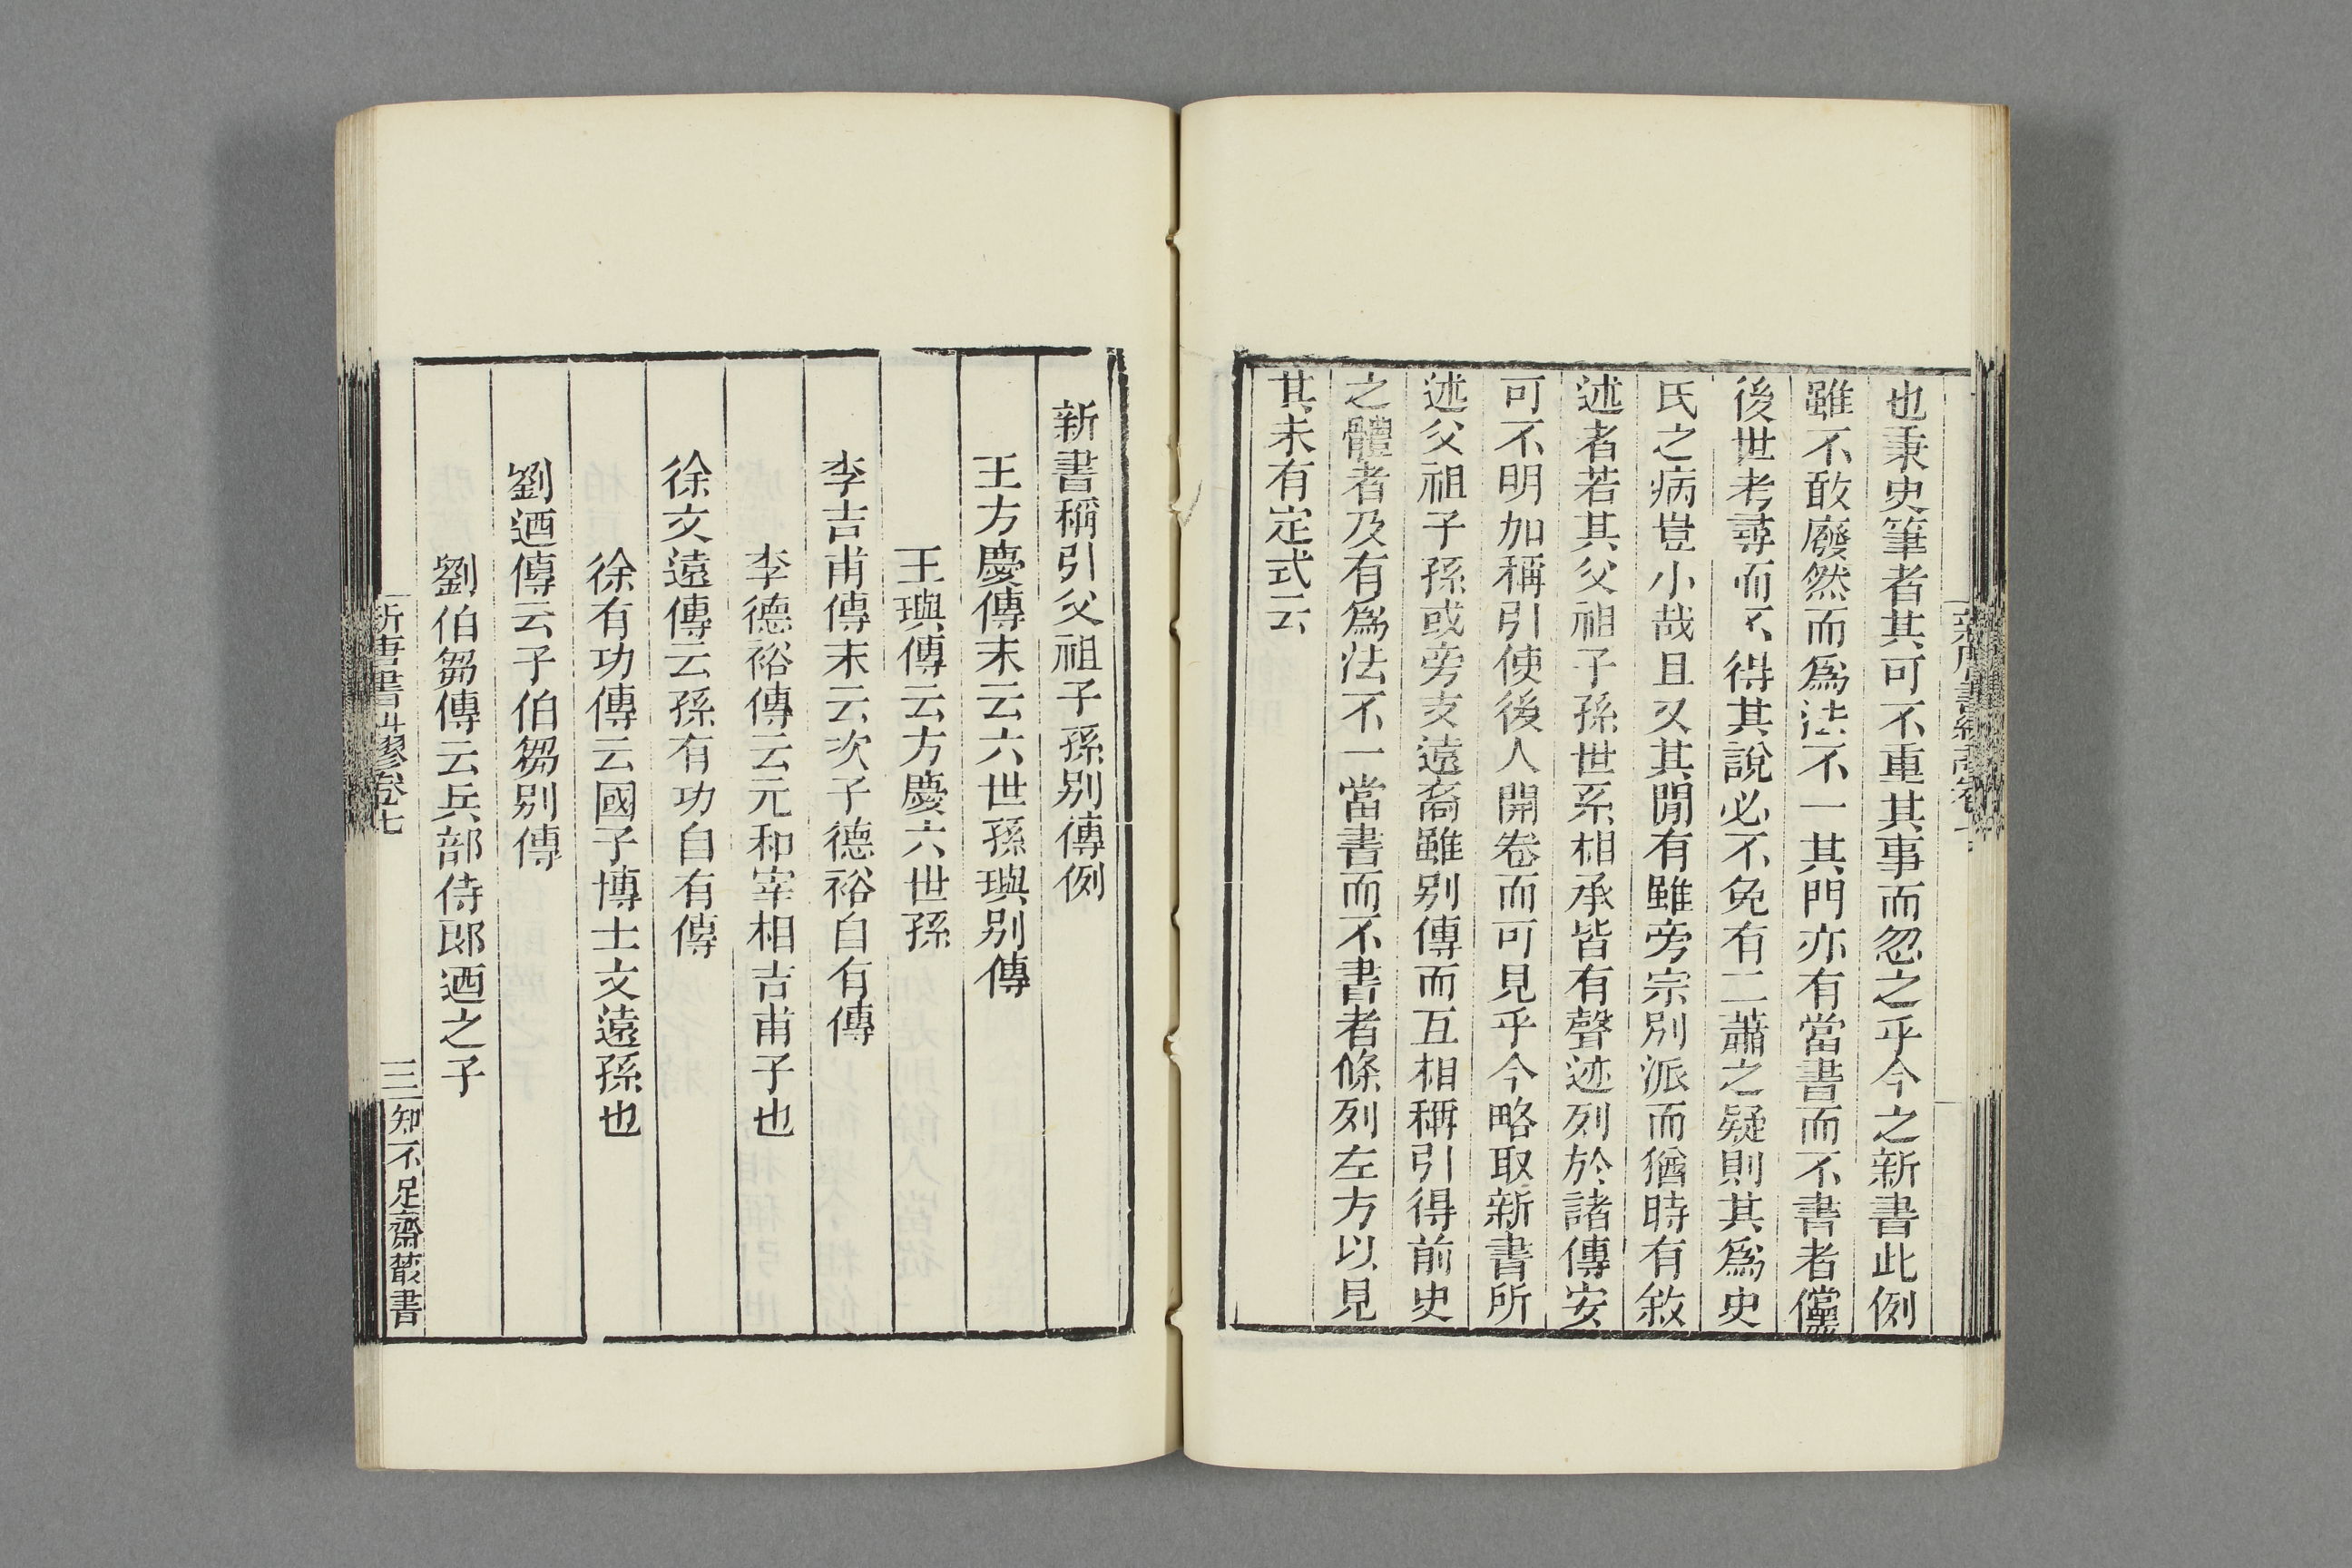 也秉史筆者其可不重其事而忽之乎今之新書此例
雖不敢廢然而爲法不一其門亦有當書而不書者儻
後世考尋而不得其說必不免有二蕭之疑則其爲史
氏之病豈小哉且又其閒有雖旁宗別派而猶時有敘
述者若其父祖子孫世系相承皆有聲迹列於諸傳安
可不明加稱引使後人開卷而可見乎今略取新書所
述父祖子孫或旁支遠裔雖别傳而互相稱引得前史
之體者及有爲法不一當書而不書者條列左方以見
其未有定式云
新書稱引父祖子孫别傳例
王方慶傳末云六世孫璵别傳
王璵傳云方慶六世孫
李吉甫傳末云次子德裕自有傳
李德裕傳云元和宰相吉甫子也
徐文遠傳云孫有功自有傳
徐有功傳云國子博士文遠孫也
劉迺傳云子伯芻别傳
劉伯芻傳云兵部侍郎迺之子
卷七
三
知不足齋叢書